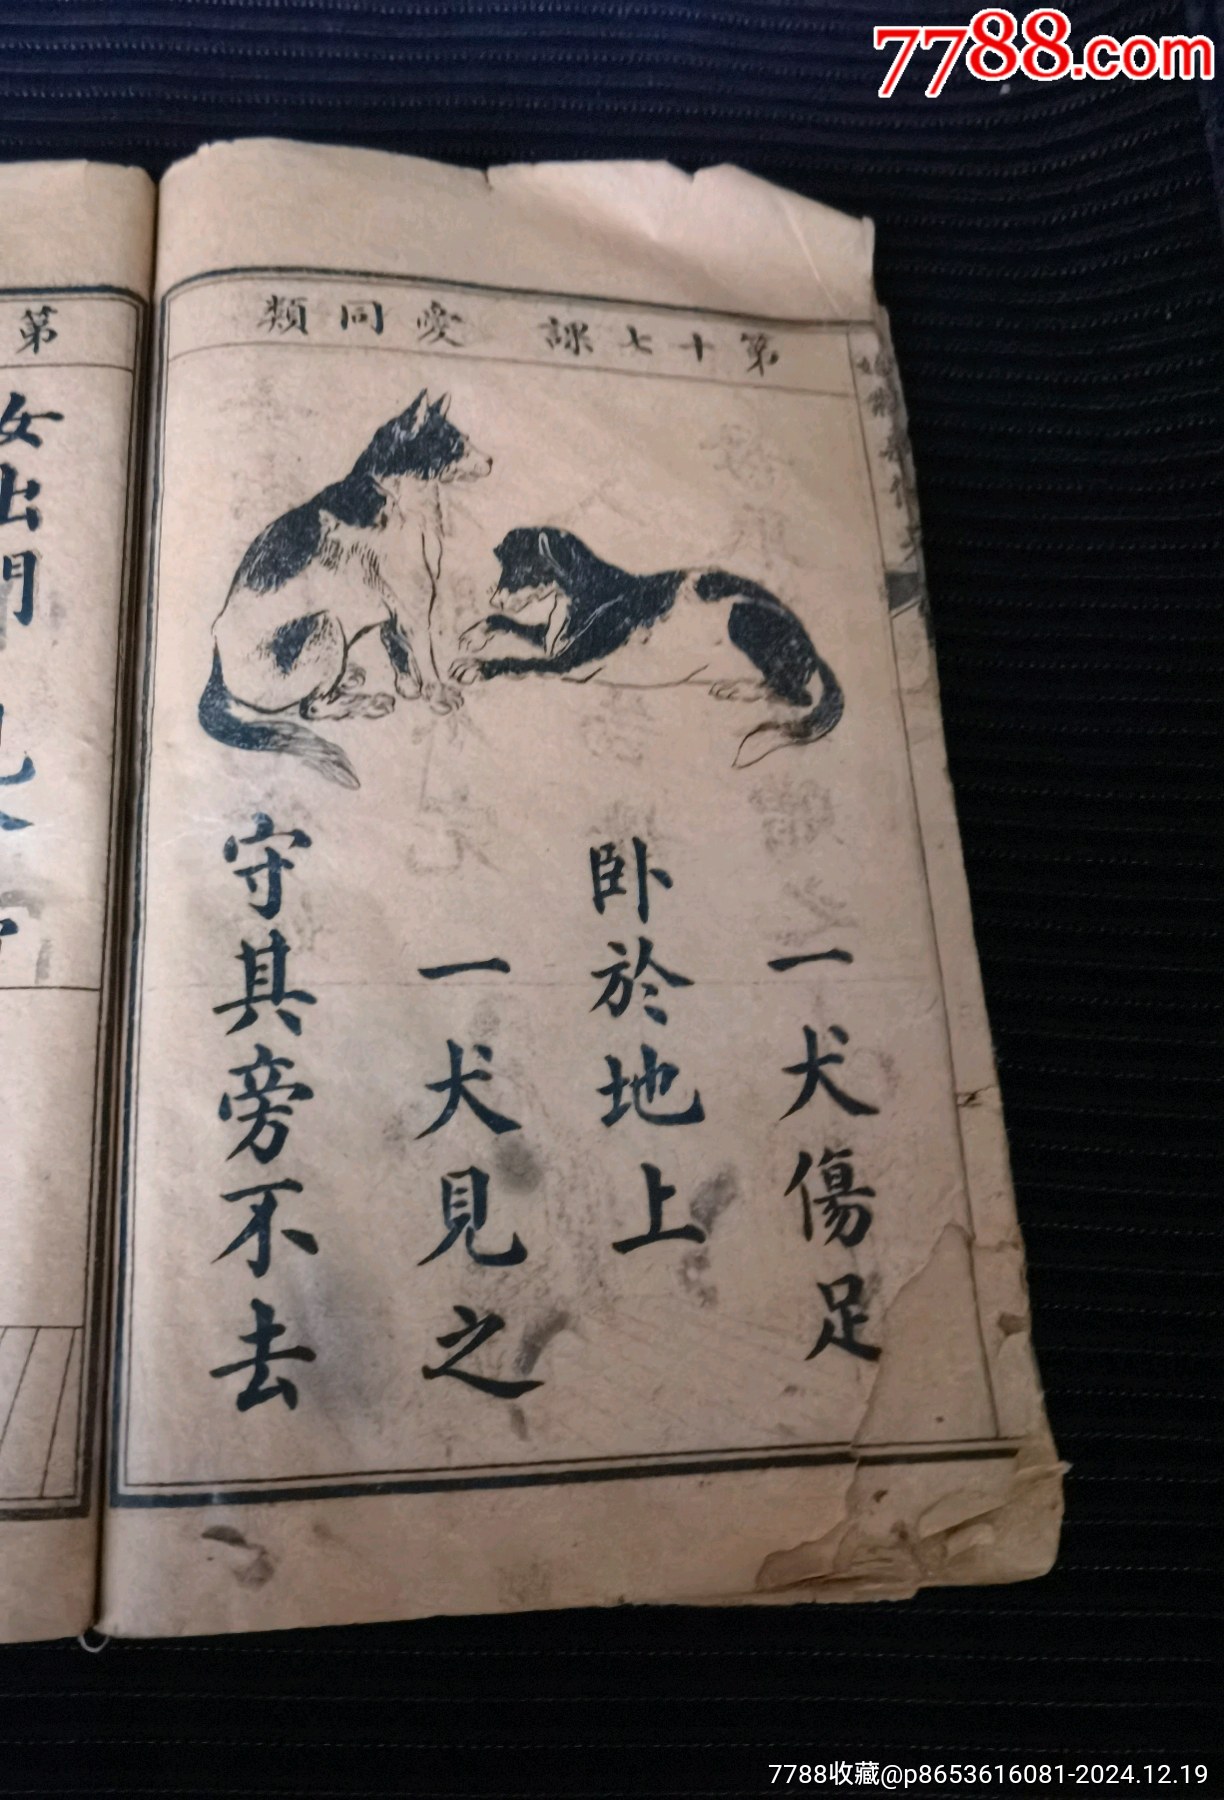 7788.com
第十七課 愛同類
一犬傷足
臥於地上
一犬見之
守其旁不去
第
女出門
7788收藏@p8653616081-2024.12.19